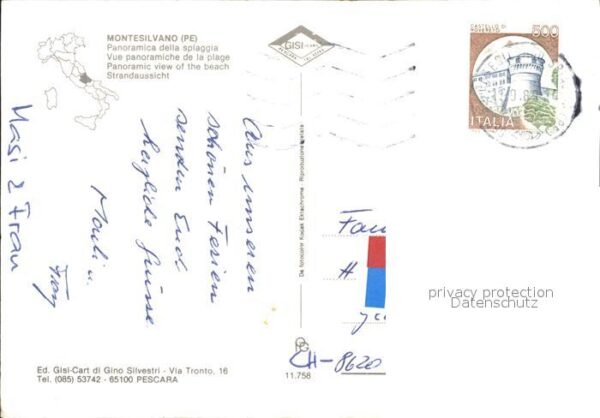 MONTESILVANO (PE)
Panoramica della spiaggia
Vue panoramiche de la plage
Panoramic view of the beach
Strandaussicht
GISI
CASTELLO DI
ROVERETO
500
ITALIA
Aus unseren
schönen Ferien
senden Euch
herzliche Grüsse
u.
Fam
H
CH-8620
privacy protection
Datenschutz
Da fotocolor Kodak Ektachrome - Riproduzione vietata
11.758
Ed. Gisi-Cart di Gino Silvestri - Via Tronto, 16
Tel. (085) 53742 - 65100 PESCARA